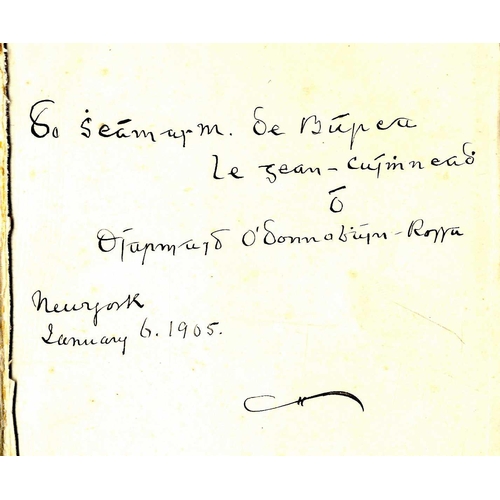 Do Ṡeámas m. de Búrca
le gean-cuiṁneaḋ
ó
Diarmaid O'Donnoḃáin-Rossa
New york
January 6. 1905.